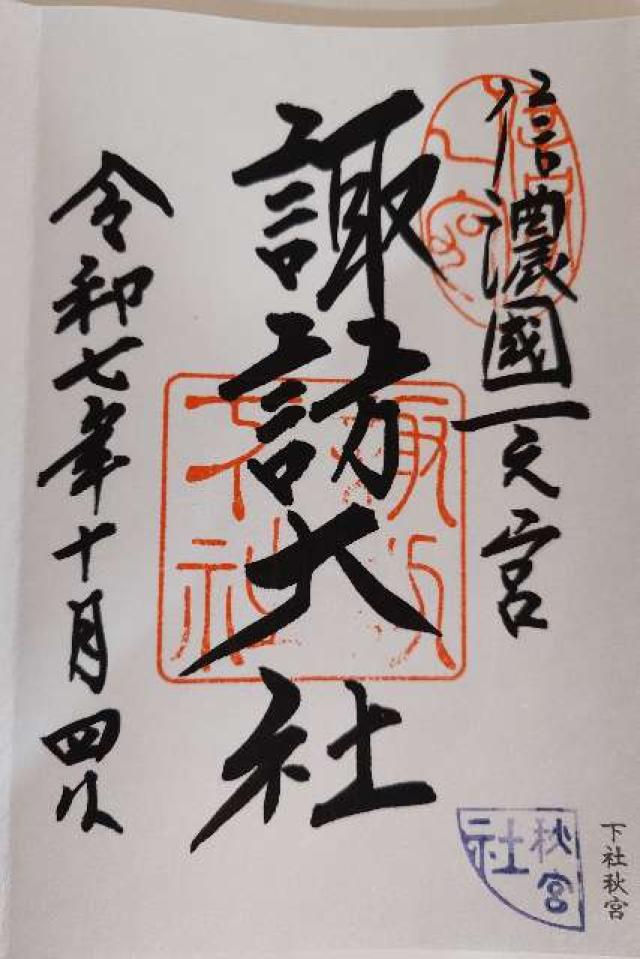 信濃國一之宮
諏訪大社
令和七年十月四日
諏訪大社
秋宮
社
下社秋宮